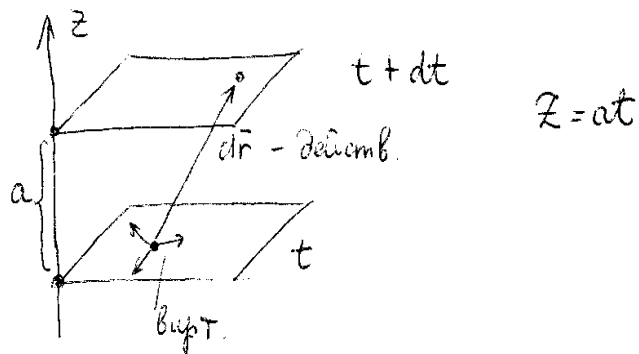 z
t + dt
z = at
dr̄ - действ.
a
t
вирт.